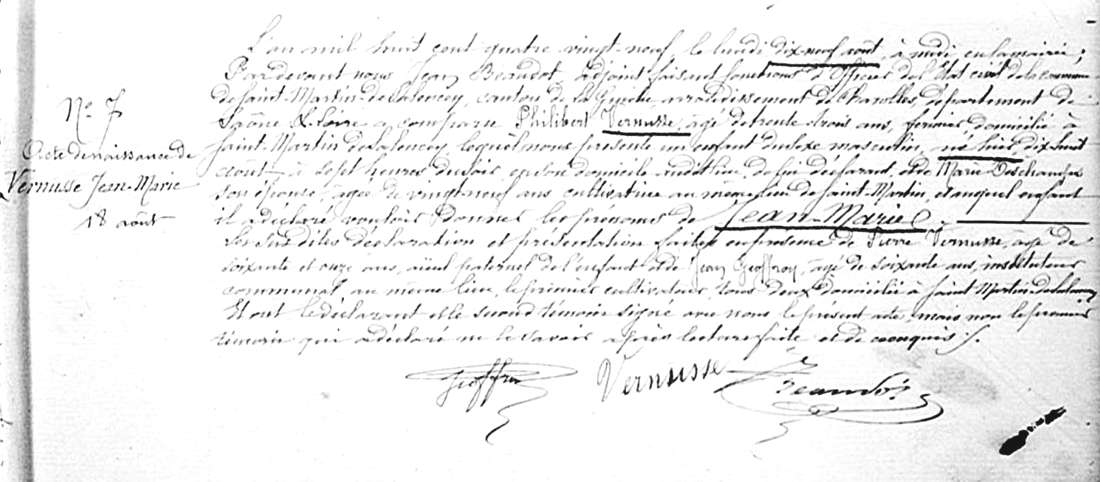 N° 7
Acte de naissance de
Vernusse Jean-Marie
18 août
L'an mil huit cent quatre vingt-neuf, le lundi dix-neuf août, à midi, en la mairie;
Pardevant nous Jean Beaudot, adjoint faisant fonctions d'Officier de l'État civil de la commune
de Saint-Martin-de-Salencey, canton de la Guiche, arrondissement de Charolles, département de
Saône & Loire a comparu Philibert Vernusse, âgé de trente trois ans, fermier, domicilié à
Saint-Martin de Salencey, lequel nous présente un enfant du sexe masculin, né hier dix-huit
août à sept heures du soir, en son domicile audit lieu, de lui déclarant, et de Marie Deschamps
son épouse, âgée de vingt-neuf ans, cultivatrice au même lieu de Saint-Martin, et auquel enfant
il a déclaré vouloir donner les prénoms de Jean-Marie.
Les susdites déclaration et présentation faites en présence de Pierre Vernusse, âgé de
soixante et onze ans, aïeul paternel de l'enfant et de Jean Geoffroy, âgé de soixante ans, instituteur
communal au même lieu, le premier cultivateur, tous deux domiciliés à Saint Martin de Salencey
Et ont le déclarant et le second témoin signé avec nous le présent acte, mais non le premier
témoin qui a déclaré ne le savoir après lecture faite et de ce requis ./.
Geoffroy Vernusse Beaudot